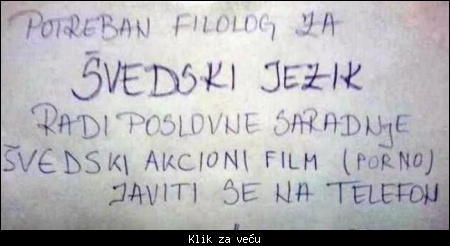 POTREBAN FILOLOG ZA
ŠVEDSKI JEZIK
RADI POSLOVNE SARADNJE
ŠVEDSKI AKCIONI FILM (PORNO)
JAVITI SE NA TELEFON
Klik za veću